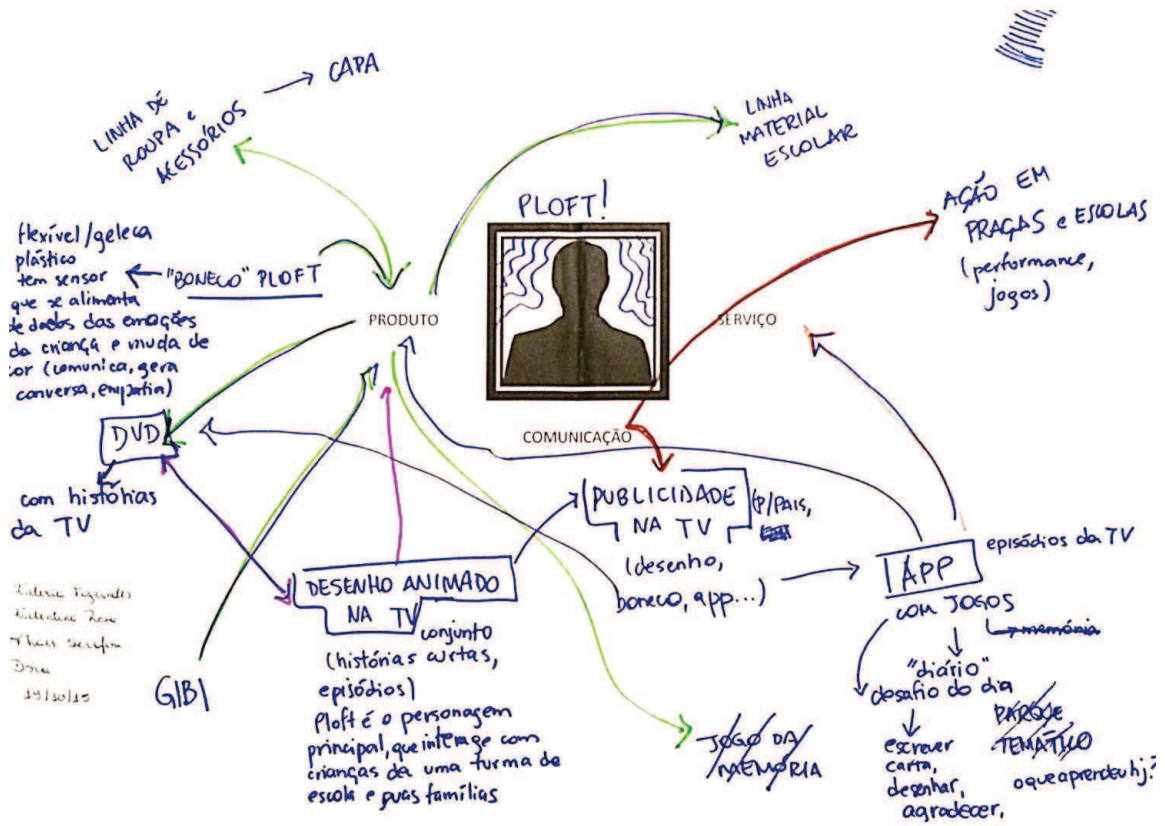 LINHA DE
ROUPA e
ACESSÓRIOS
CAPA
LINHA
MATERIAL
ESCOLAR
PLOFT!
AÇÃO EM
PRAÇAS e ESCOLAS
(performance,
jogos)
flexível/geleca
plástico
tem sensor
que se alimenta
de dados das emoções
da criança e muda de
cor (comunica, gera
conversa, empatia)
"BONECO" PLOFT
PRODUTO
SERVIÇO
COMUNICAÇÃO
DVD
com histórias
da TV
PUBLICIDADE
NA TV
(P/PAIS,
(desenho,
boneco, app...)
APP
episódios da TV
com JOGOS
memória
"diário"
desafio do dia
escrever
carta,
desenhar,
agradecer,
PARQUE
TEMÁTICO
o que aprendeu hj.?
DESENHO ANIMADO
NA TV
conjunto
(histórias curtas,
episódios)
Ploft é o personagem
principal, que interage com
crianças de uma turma de
escola e suas famílias
GIBI
JOGO DA
MEMÓRIA
19/10/15